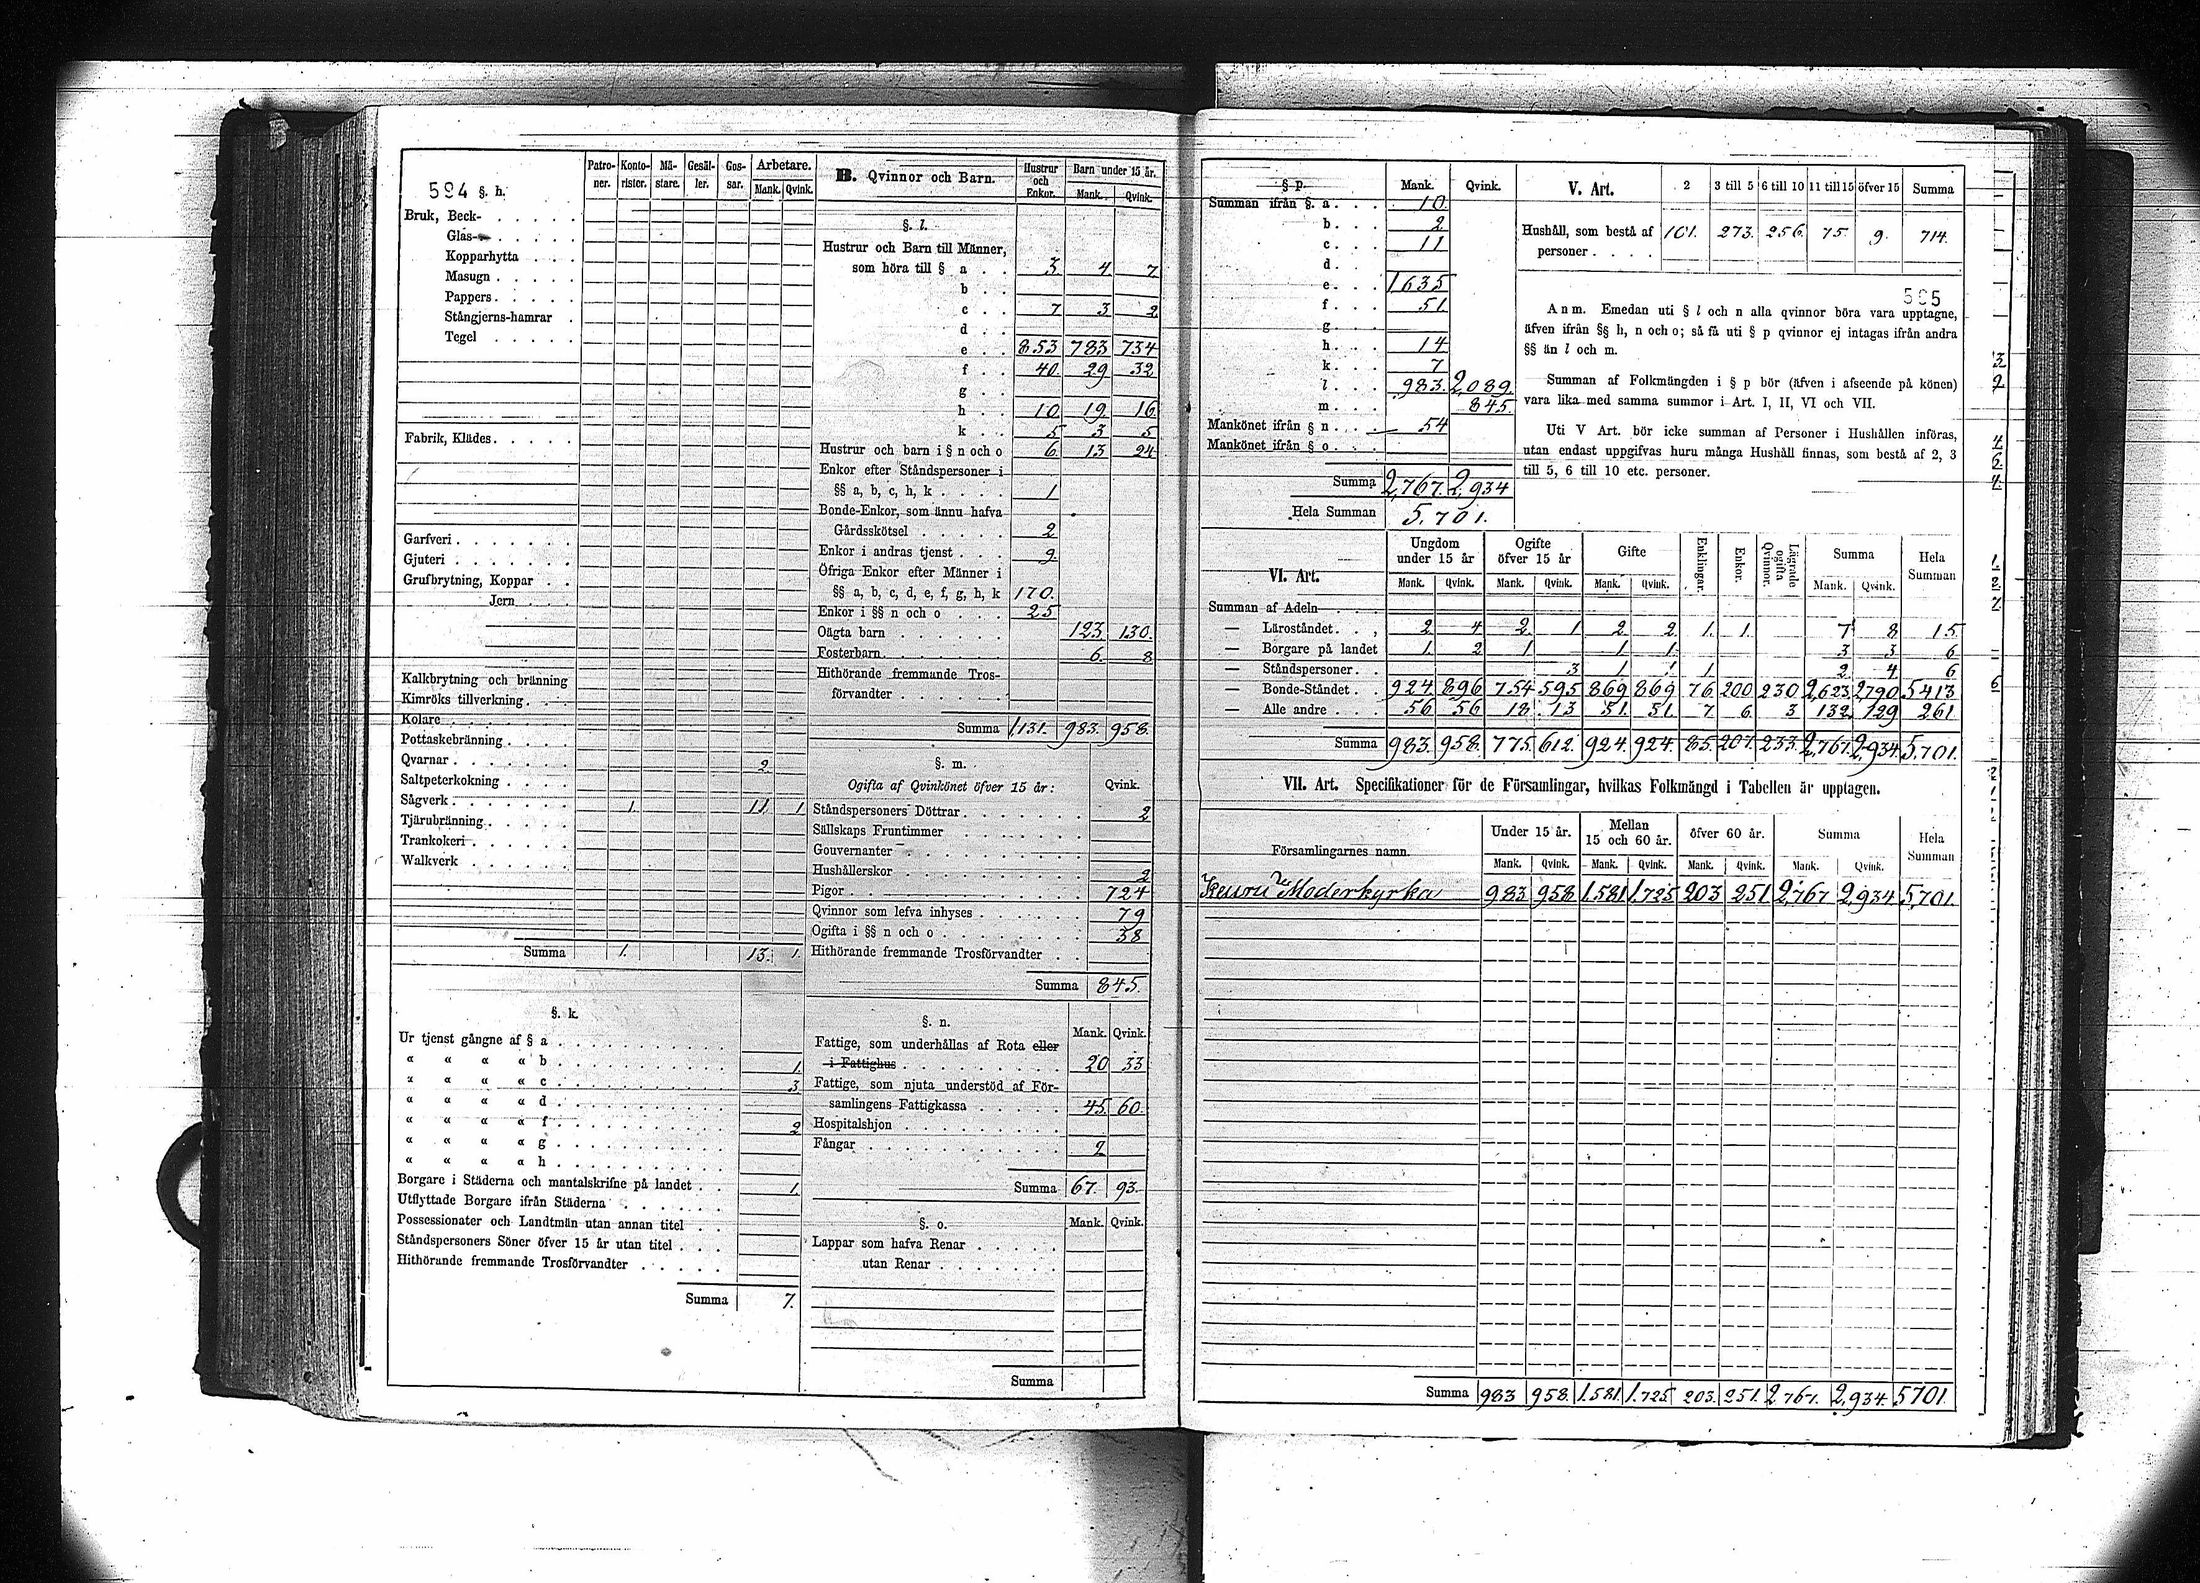 594 §. h.
Patroner. Kontorister. Mästare. Gesäller. Gossar. Arbetare.
Mank. Qvink.
Bruk, Beck-
Glas-
Kopparhytta
Masugn
Pappers
Stångjerns-hamrar
Tegel
Fabrik, Klädes
Garfveri
Gjuteri
Grufbrytning, Koppar
Jern
Kalkbrytning och bränning
Kimröks tillverkning
Kolare
Pottaskebränning
Qvarnar 2
Saltpeterkokning
Sågverk 1. 11 1
Tjärubränning
Trankokeri
Walkverk
Summa 1. 13. 1.
§. k.
Ur tjenst gångne af § a
« « « « b 1.
« « « « c 3
« « « « d
« « « « f 2
« « « « g
« « « « h
Borgare i Städerna och mantalskrifne på landet 1.
Utflyttade Borgare ifrån Städerna
Possessionater och Landtmän utan annan titel
Ståndspersoners Söner öfver 15 år utan titel
Hithörande fremmande Trosförvandter
Summa 7.
B. Qvinnor och Barn. Hustrur och Enkor. Barn under 15 år.
Mank. Qvink.
§. l.
Hustrur och Barn till Männer,
som höra till § a 3 4 7
b
c 7 3 2
d
e 853 783 734
f 40. 29 32
g
h 10 19 16
k 5 3 5
Hustrur och barn i § n och o 6 13 24
Enkor efter Ståndspersoner i
§§ a, b, c, h, k 1
Bonde-Enkor, som ännu hafva
Gårdsskötsel 2
Enkor i andras tjenst 9
Öfriga Enkor efter Männer i
§§ a, b, c, d, e, f, g, h, k 170.
Enkor i §§ n och o 25
Oägta barn 123 130.
Fosterbarn 6. 8
Hithörande fremmande Trosförvandter
Summa 1131. 983. 958.
§. m.
Ogifta af Qvinkönet öfver 15 år: Qvink.
Ståndspersoners Döttrar 2
Sällskaps Fruntimmer
Gouvernanter
Hushållerskor 2
Pigor 724
Qvinnor som lefva inhyses 79
Ogifta i §§ n och o 38
Hithörande fremmande Trosförvandter
Summa 845.
§. n.
Mank. Qvink.
Fattige, som underhållas af Rota eller
i Fattighus 20 33
Fattige, som njuta understöd af Församlingens Fattigkassa 45. 60.
Hospitalshjon
Fångar 2
Summa 67. 93.
§. o. Mank. Qvink.
Lappar som hafva Renar
utan Renar
Summa
§ p. Mank. Qvink.
Summan ifrån §. a 10.
b 2
c 11
d
e 1635
f 51.
g
h 14
k 7
l 983. 2,089.
m 845.
Mankönet ifrån § n 54
Mankönet ifrån § o
Summa 2,767. 2,934
Hela Summan 5.701.
V. Art. 2 3 till 5 6 till 10 11 till 15 öfver 15 Summa
Hushåll, som bestå af personer 101. 273. 256. 75. 9. 714.
595
Anm. Emedan uti § l och n alla qvinnor böra vara upptagne,
äfven ifrån §§ h, n och o; så få uti § p qvinnor ej intagas ifrån andra
§§ än l och m.
Summan af Folkmängden i § p bör (äfven i afseende på könen)
vara lika med samma summor i Art. I, II, VI och VII.
Uti V Art. bör icke summan af Personer i Hushållen införas,
utan endast uppgifvas huru många Hushåll finnas, som bestå af 2, 3
till 5, 6 till 10 etc. personer.
VI. Art. Ungdom under 15 år Ogifte öfver 15 år Gifte Enklingar. Enkor. Lägrade ogifta Qvinnor. Summa Hela Summan
Mank. Qvink. Mank. Qvink. Mank. Qvink. Mank. Qvink.
Summan af Adeln
— Läroståndet 2 4 2. 1 2 2. 1. 1. 7 8 15.
— Borgare på landet 1. 2 1 1 1 3 3 6
— Ståndspersoner 3 1 1 1 2 4 6
— Bonde-Ståndet 924 896 754 595 869 869 76 200 230 2,623 2,790 5413
— Alle andre 56 56 18. 13 51. 51. 7. 6. 3 132. 129 261
Summa 983. 958. 775. 612. 924. 924. 85. 207. 233. 2,767. 2,934. 5,701.
VII. Art. Specifikationer för de Församlingar, hvilkas Folkmängd i Tabellen är upptagen.
Församlingarnes namn. Under 15 år. Mellan 15 och 60 år. öfver 60 år. Summa Hela Summan
Mank. Qvink. Mank. Qvink. Mank. Qvink. Mank. Qvink.
Keuru Moderkyrka 983 958 1.581 1.725 203 251 2,767 2,934 5,701.
Summa 983 958. 1.581 1.725 203. 251. 2.767. 2,934. 5701.